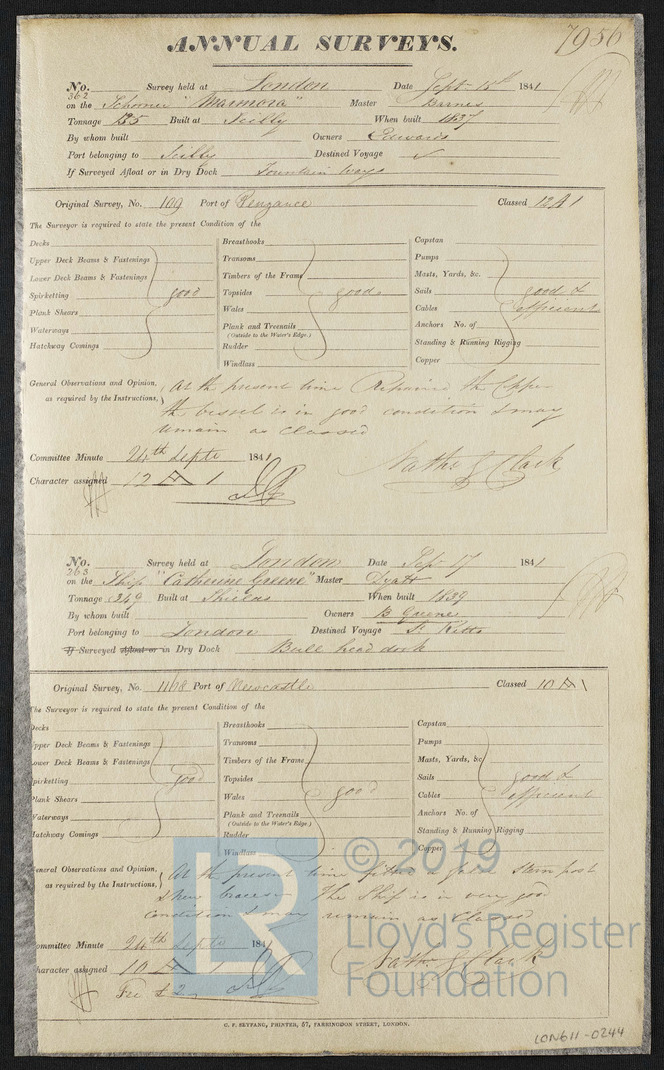 7956
ANNUAL SURVEYS.
No. 362 Survey held at London Date Sept 15th 1841
on the Schooner "Marmora" Master Barnes
Tonnage 135 Built at Scilly When built 1837
By whom built Owners Edwards
Port belonging to Scilly Destined Voyage ✓
If Surveyed Afloat or in Dry Dock Fountain Ways
Original Survey, No. 109 Port of Penzance Classed 12 A 1
The Surveyor is required to state the present Condition of the
Decks
Upper Deck Beams & Fastenings
Lower Deck Beams & Fastenings
Spirketting good
Plank Shears
Waterways
Hatchway Comings
Breasthooks
Transoms
Timbers of the Frame
Topsides good
Wales
Plank and Treenails
(Outside to the Water's Edge.)
Rudder
Windlass
Capstan
Pumps
Masts, Yards, &c.
Sails good &
Cables efficient
Anchors No. of
Standing & Running Rigging
Copper
General Observations and Opinion, as required by the Instructions,
At the present time Repaired the Copper
the vessel is in good condition & may
remain as Classed
Committee Minute 24th Septr 1841
Character assigned 12 A 1
Nathl G Clark
No. 363 Survey held at London Date Sep 17 1841
on the Ship "Catherine Greene" Master Dyatt
Tonnage 349 Built at Shields When built 1839
By whom built Owners B Greene
Port belonging to London Destined Voyage St Kitts
If Surveyed Afloat or in Dry Dock Bull head dock
Original Survey, No. 1168 Port of Newcastle Classed 10 A 1
The Surveyor is required to state the present Condition of the
Decks
Upper Deck Beams & Fastenings
Lower Deck Beams & Fastenings
Spirketting good
Plank Shears
Waterways
Hatchway Comings
Breasthooks
Transoms
Timbers of the Frame
Topsides
Wales good
Plank and Treenails
(Outside to the Water's Edge.)
Rudder
Windlass
Capstan
Pumps
Masts, Yards, &c
Sails good &
Cables efficient
Anchors No. of
Standing & Running Rigging
Copper
General Observations and Opinion, as required by the Instructions,
At the present time fitted a false stern post
& new braces. The Ship is in very good
condition & may remain as Classed
Committee Minute 24th Septr 1841
Character assigned 10 A 1
Nathl G Clark
Fee £ 2
LR
© 2019
Lloyd's Register
Foundation
G. F. SEYFANG, PRINTER, 57, FARRINGDON STREET, LONDON.
LON611-0244